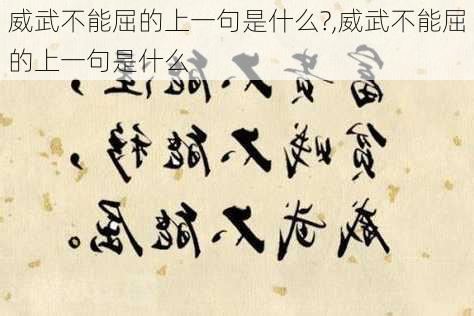 威武不能屈的上一句是什么?,威武不能屈
的上一句是什么
富贵不能淫，
贫贱不能移，
威武不能屈。